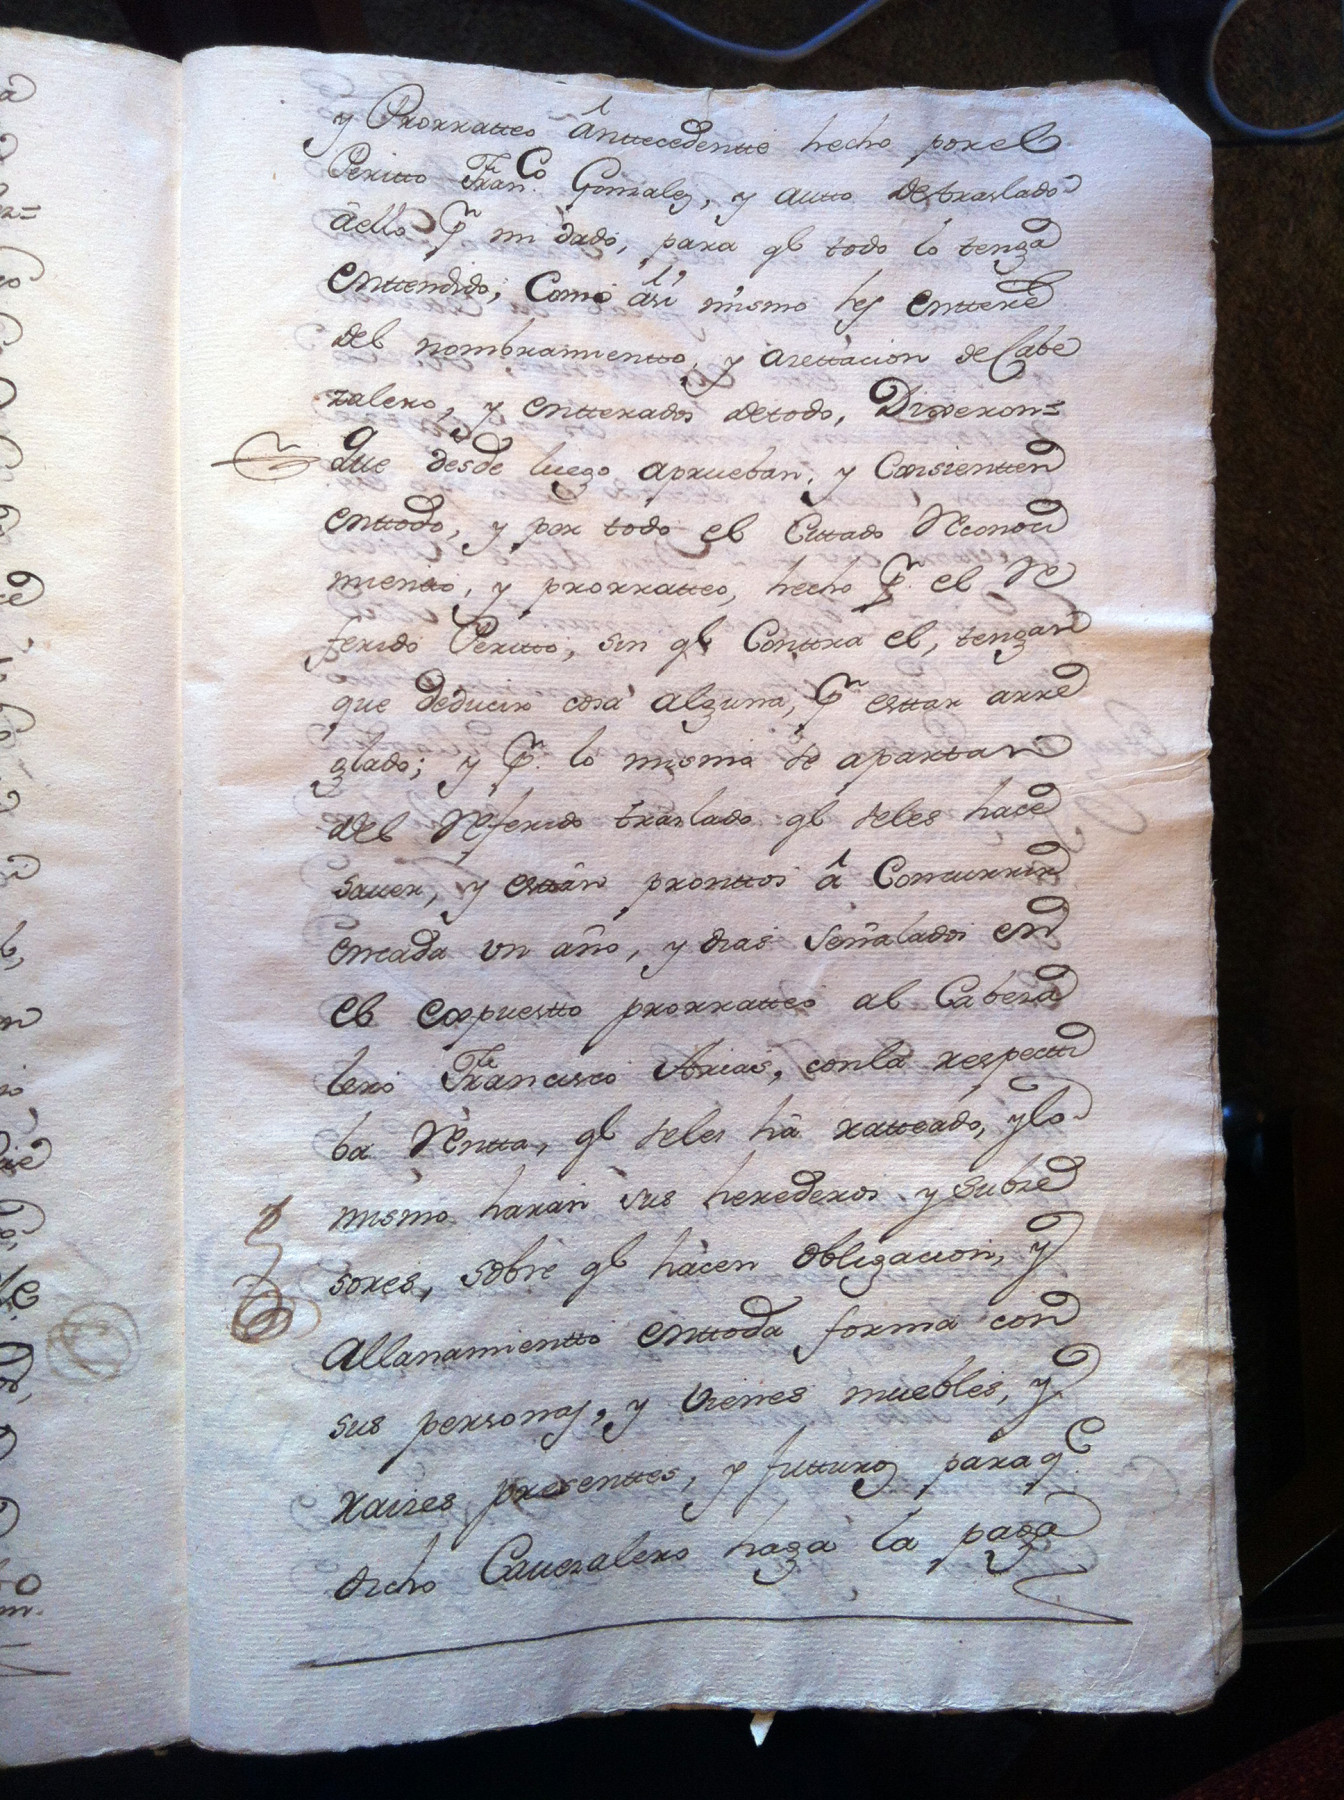 y Prorratteo Ánttecedentte hecho porel
Peritto Fran.co Gonzalez, y autto detraslado
âello Pr mi dado, para ql todo lo tenga
enttendido, Como âsi mismo les entteré
del nombramientto, y azettacion de Cabe
zalero, y entterados detodo, Dixeron=
que desde luego aprueban, y Consientten
enttodo, y por todo el Cittado Reconoci
mientto, y prorratteo, hecho Pr. el Re
ferido Peritto, sin ql Conttra el, tengan
que deducir cosa alguna, Pr esttar arre
glado; y Pr. lo mismo se apartan
del Referido traslado ql seles hace
sauer, y esttân pronttos â Concurrir
encada un año, y dias señalados en
el expuestto prorratteo al Cabeza
lero Francisco Arias, conla respecti
ba Rentta, ql seles hâ ratteado, ylo
mismo harân sus herederos y subce
sores, sobre ql hâcen obligacion, y
allanamientto enttoda forma con
sus personas, y vienes muebles, y
raizes presenttes, y futturos para qe
dicho Cauezalero haga la paga